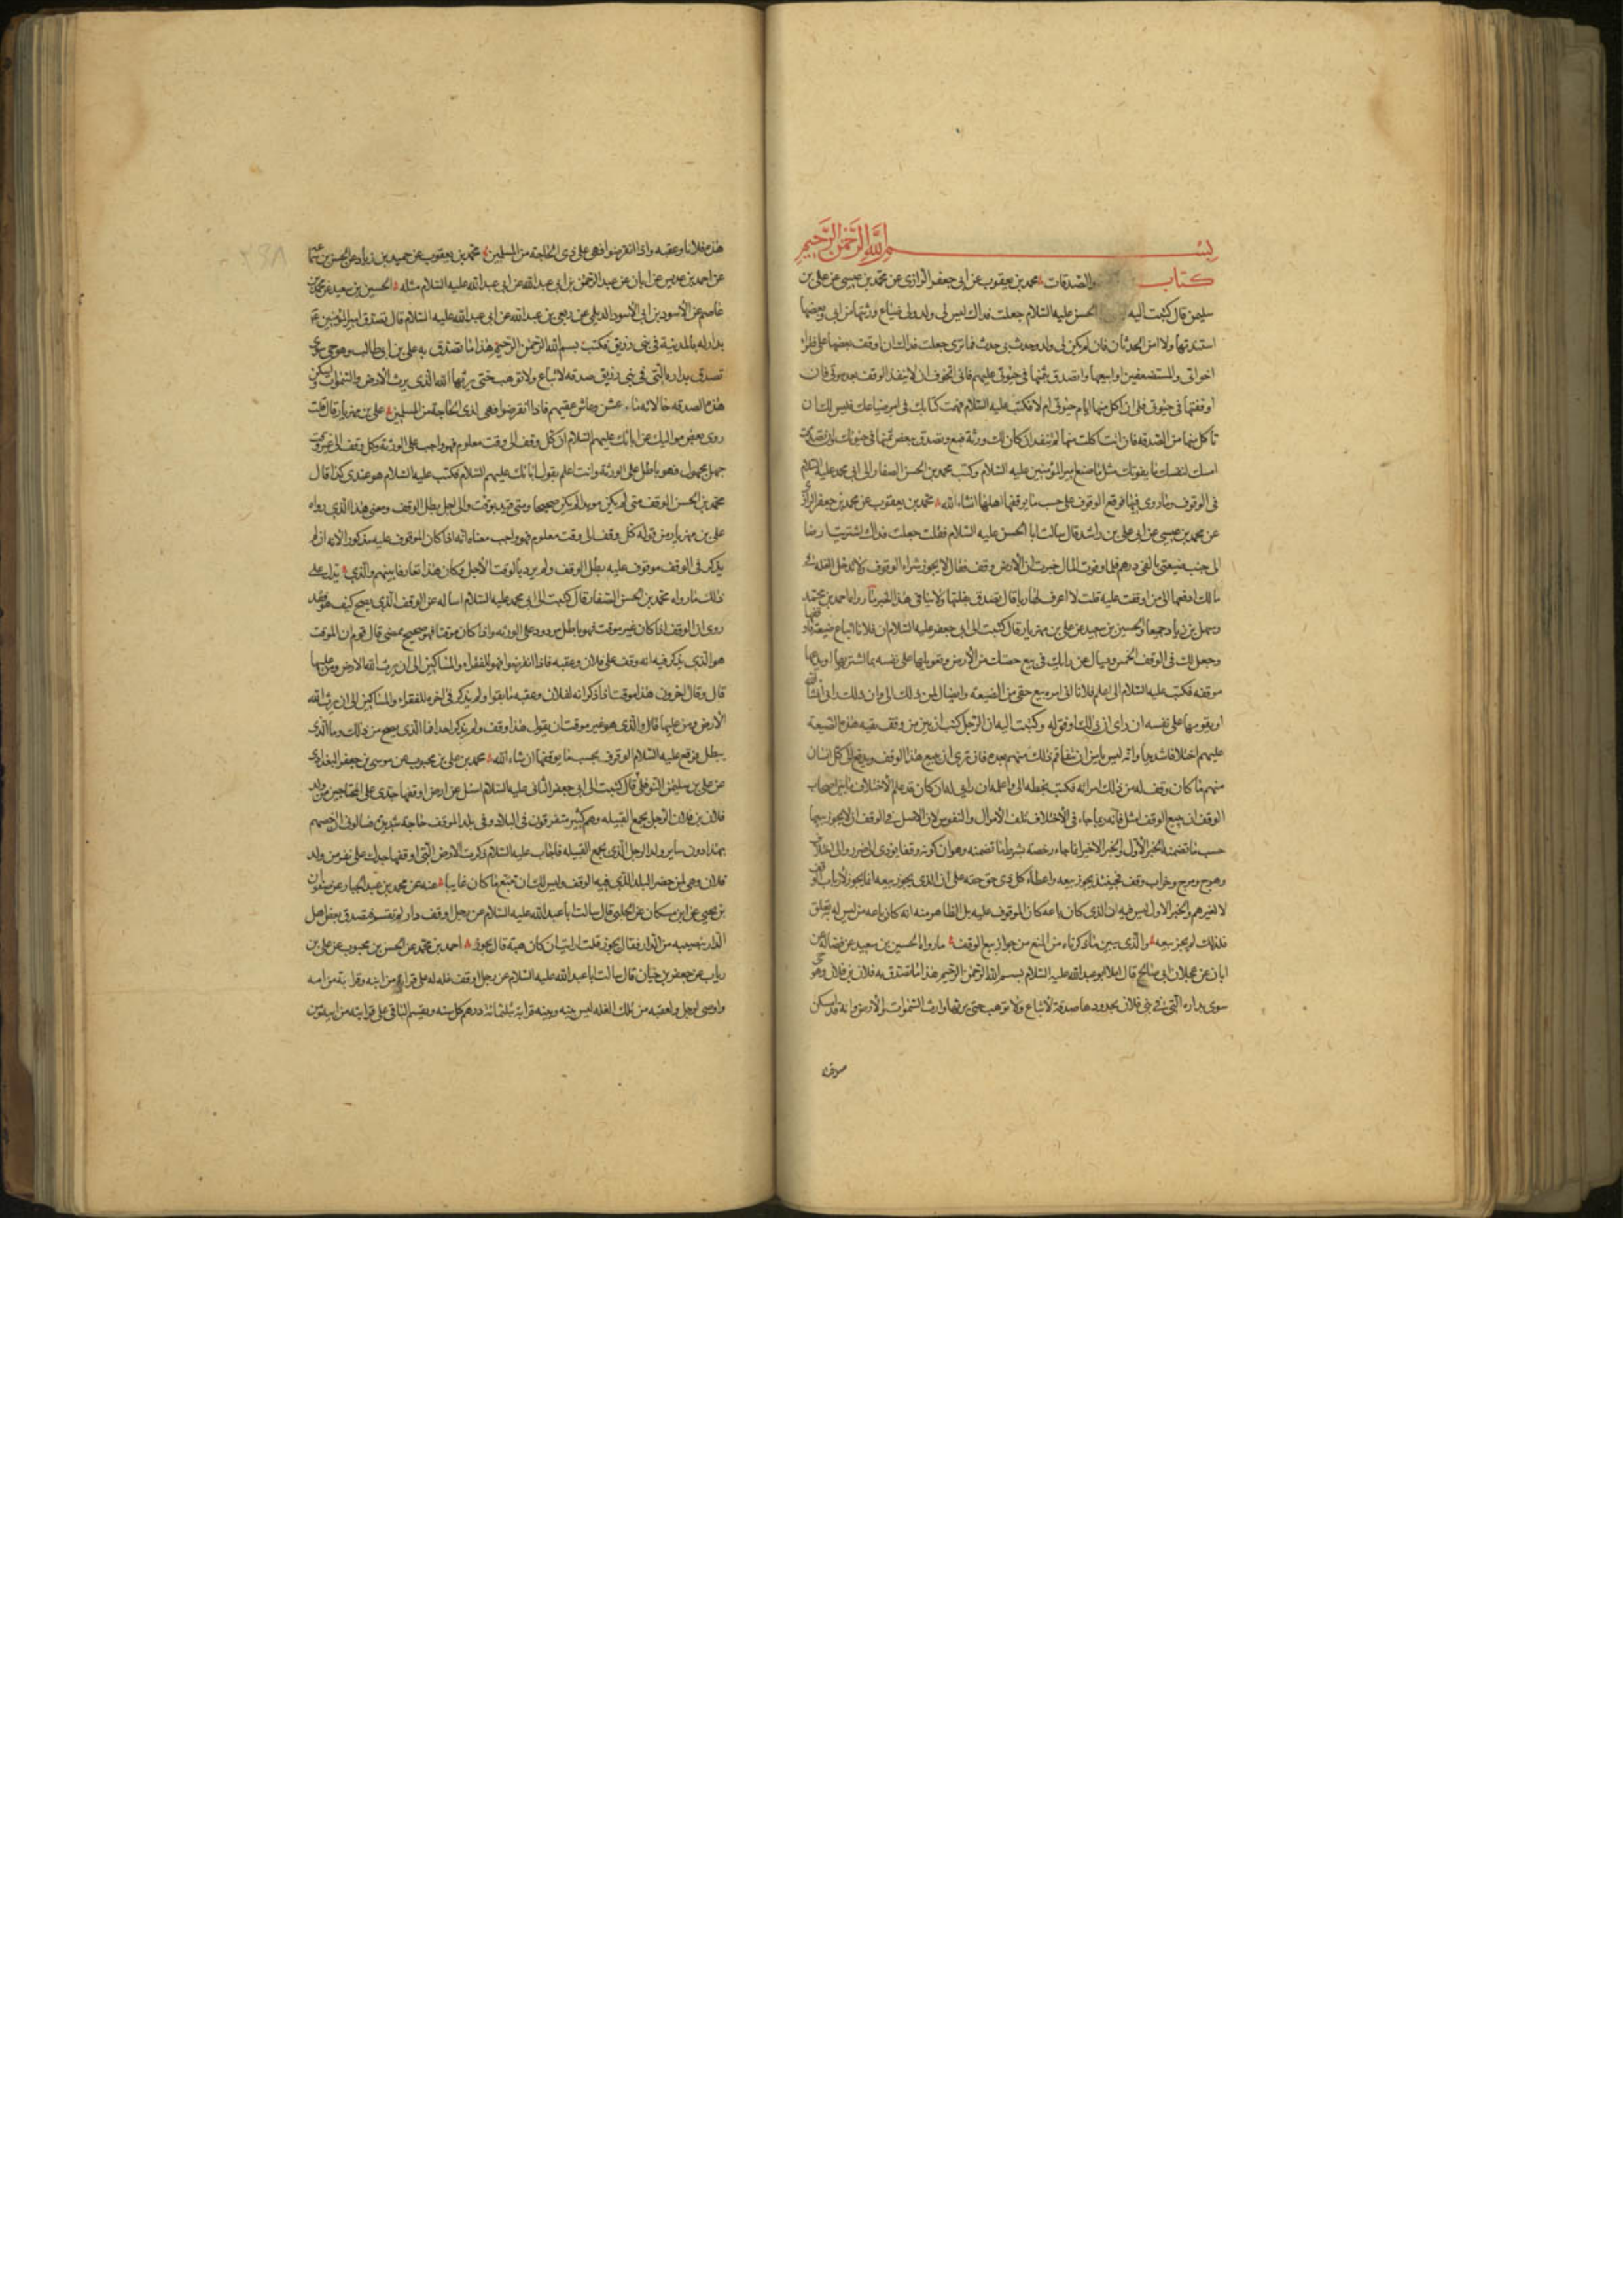 بسم الله الرحمن الرحيم
كتاب والصدقات محمد بن يعقوب عن ابى جعفر الرازى عن محمد بن عيسى عن على بن
سليمن قال كتبت اليه الحسن عليه السلام جعلت فداك ليس لى ولد ولى ضياع ورثتها من ابى وبعضها
استفدتها ولا امن الحدثان فان لم يكن لى ولد وحدث بى حدث فما ترى جعلت فداك ان اوقف بعضها على فقراء
اخوانى والمستضعفين او ابيعها واتصدق بثمنها فى حيوتى عليهم فانى اتخوف ان لا ينفذ الوقف بعد موتى فان
اوقفتها فى حيوتى فلى ان اكل منها ايام حيوتى ام لا فكتب عليه السلام فهمت كتابك فى امر ضياعك فليس لك ان
تاكل منها من الصدقة فان انت اكلت منها لم ينفذ ان كان لك ورثة فبع وتصدق ببعض ثمنها فى حيوتك وان تصدقت
امسك لنفسك ما يقوتك مثل ما صنع امير المؤمنين عليه السلام وكتب محمد بن الحسن الصفار الى ابى محمد عليه السلام
فى الوقوف وما روى فيها فوقع الوقوف على حسب ما يوقفها اهلها انشاء الله محمد بن يعقوب عن محمد بن جعفر الرزاز
عن محمد بن عيسى عن ابى على بن راشد قال سالت ابا الحسن عليه السلام فقلت جعلت فداك اشتريت ارضا
الى جنب ضيعتى بالفى درهم فلما وفرت المال خبرت ان الارض وقف فقال لا يجوز شراء الوقوف ولا تدخل الغله فى
مالك ادفعها الى من اوقفت عليه قلت لا اعرف لها ربا قال تصدق بغلتها ولا ينافى هذا الخبر ما رواه احمد بن محمد
وسهل بن زياد جميعا والحسين بن سعيد عن على بن مهزيار قال كتبت الى ابى جعفر عليه السلام ان فلانا ابتاع ضيعة
وجعل لك فى الوقف الخمس ويسال عن رايك فى بيع حصتك من الارض وتقويمها على نفسه بما اشتراها او يدعها
موقفه فكتب عليه السلام الى اعلم فلانا انى امره ببيع حقى من الضيعة وايصال ثمن ذلك الى وان ذلك رايى
او يقومها على نفسه ان راى ان ذلك اوفق له وكتبت اليه ان الرجل كتب ان بين من وقف بقيه هذه الضيعة
عليهم اختلافا شديدا وانه ليس يامن ان يتفاقم ذلك بينهم بعده فان ترى ان يبيع هذا الوقف ويدفع الى كل انسان
منهم ما كان وقف له من ذلك امرته فكتب بخطه الى واعلمه ان رايى له ان كان قد علم الاختلاف ما بين اصحاب
الوقف ان بيع الوقف امثل فانه ربما جاء فى الاختلاف تلف الاموال والنفوس لان الاصل فى الوقف ان لا يجوز بيعها
حسب ما تضمنه الخبر الاول والخبر الاخير انما جاء رخصة بشرط ما تضمنه وهو ان كونه وقفا يؤدى الى ضرر والى اختلاف
وهرج ومرج وخراب وقف فحينئذ يجوز بيعه واعطاء كل ذى حق حقه على ان الذى يجوز بيعه انما يجوز لارباب
لا لغيرهم والخبر الاول ليس فيه ان الذى كان باعه كان الموقوف عليه بل الظاهر منه انه كان باعه من ليس له تعلق
فلذلك لم يجز بيعه والذى يبين ما ذكرناه من المنع من جواز بيع الوقف ما رواه الحسين بن سعيد عن فضاله عن
ابان عن عجلان ابى صالح قال املا ابو عبدالله عليه السلام بسم الله الرحمن الرحيم هذا ما تصدق به فلان بن فلان وهو حى
سوى بداره التى فى بنى فلان بحدودها صدقة لا تباع ولا توهب حتى يرثها وارث السموات والارض وانه قد اسكن
هذه فلانا وعقبه واذا انقرضوا فهى على ذى الحاجة من المسلمين محمد بن يعقوب عن حميد بن زياد عن الحسن بن
عن احمد بن عديس عن ابان عن عبد الرحمن بن ابى عبدالله عن ابى عبدالله عليه السلام مثله الحسين بن سعيد عن محمد بن
عاصم عن الاسود بن ابى الاسود الديلى عن ربعى بن عبدالله عن ابى عبدالله عليه السلام قال تصدق امير المؤمنين
بدار له بالمدينة فى بنى زريق فكتب بسم الله الرحمن الرحيم هذا ما تصدق به على بن ابى طالب وهو حى سوى
تصدق بداره التى فى بنى زريق صدقه لا تباع ولا توهب حتى يرثها الله الذى يرث الارض والسموات واسكن
هذه الصدقه خالاته ما عشن وعاش عقبهم فاذا انقرضوا فهى لذى الحاجة من المسلمين على بن مهزيار قال قلت
روى بعض مواليك عن ابائك عليهم السلام ان كل وقف الى وقت معلوم فهو واجب على الورثة وكل وقف الى غير وقت
جهل مجهول فهو باطل على الورثة وانت اعلم بقول ابائك عليهم السلام فكتب عليه السلام هو عندى كذا قال
محمد بن الحسن الوقف متى لم يكن مؤبدا لم يكن صحيحا ومتى قيد بوقت والى اجل بطل الوقف ومعنى هذا الذى رواه
على بن مهزيار من قوله كل وقف الى وقت معلوم فهو واجب معناه انه اذا كان الموقوف عليه مذكورا لانه ان لم
يذكر فى الوقف موقوف عليه بطل الوقف ولم يرد بالوقت الاجل وكان هذا تعارفا بينهم والذى يدل على
ذلك ما رواه محمد بن الحسن الصفار قال كتبت الى ابى محمد عليه السلام اساله عن الوقف الذى يصح كيف هو فقد
روى ان الوقف اذا كان غير موقت فهو باطل مردود على الورثه واذا كان موقتا فهو صحيح ممضى قال قوم ان الموقت
هو الذى يذكر فيه انه وقف على فلان وعقبه فاذا انقرضوا فهو للفقراء والمساكين الى ان يرث الله الارض ومن عليها
قال وقال اخرون هذا موقت اذا ذكر انه لفلان وعقبه ما بقوا ولم يذكر فى اخره للفقراء والمساكين الى ان يرث الله
الارض ومن عليها قال والذى هو غير موقت ان يقول هذا وقف ولم يذكر احدا فما الذى يصح من ذلك وما الذى
يبطل فوقع عليه السلام الوقوف بحسب ما يوقفها ان شاء الله محمد بن على بن محبوب عن موسى بن جعفر البغدادى
عن على بن سليمن النوفلى قال كتبت الى ابى جعفر الثانى عليه السلام اسئل عن ارض اوقفها جدى على المحتاجين من ولد
فلان بن فلان الرجل يجمع القبيله وهم كثير متفرقون فى البلاد وفى بلد الموقف حاجة شديدة فسالونى ان اخصهم
بهذا دون ساير ولد الرجل الذى يجمع القبيله فاجاب عليه السلام ذكرت الارض التى اوقفها جدك على نفر من ولد
فلان وهى لمن حضر البلد الذى فيه الوقف وليس لك ان تتبع ما كان غايبا عنه عن محمد بن عبد الجبار عن صفوان
بن يحيى عن ابن مسكان عن الحلبى قال سالت ابا عبدالله عليه السلام عن رجل اوقف دار لم تقسم فتصدق بعض اهل
الدار بنصيبه من الدار فقال يجوز قلت ارايت ان كان هبة قال يجوز احمد بن محمد عن الحسن بن محبوب عن على بن
رياب عن جعفر بن حيان قال سالت ابا عبدالله عليه السلام عن رجل اوقف غله له على قرابة من ابيه وقرابة من امه
واوصى لرجل ولعقبه من تلك الغله ليس بينه وبينه قرابة بثلثمائة درهم كل سنه ويقسم الباقى على قرابته من ابيه